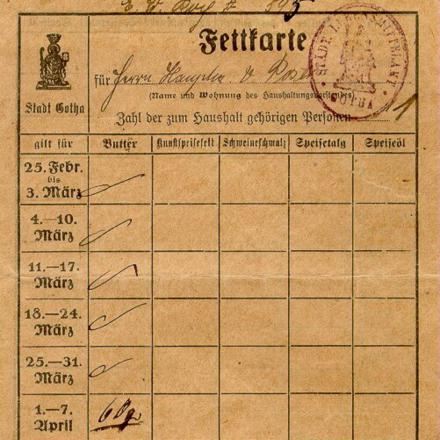 Fettkarte
Stadt Gotha
für Herrn
(Name und Wohnung des Haushaltungsvorstandes)
Zahl der zum Haushalt gehörigen Personen 1
STÄDT. LEBENSMITTELAMT
GOTHA
gilt für Butter Kunstspeisefett Schweineschmalz Speisetalg Speiseöl
25. Febr.
bis
3. März
4.—10.
März
11.—17.
März
18.—24.
März
25.—31.
März
1.—7.
April 60g